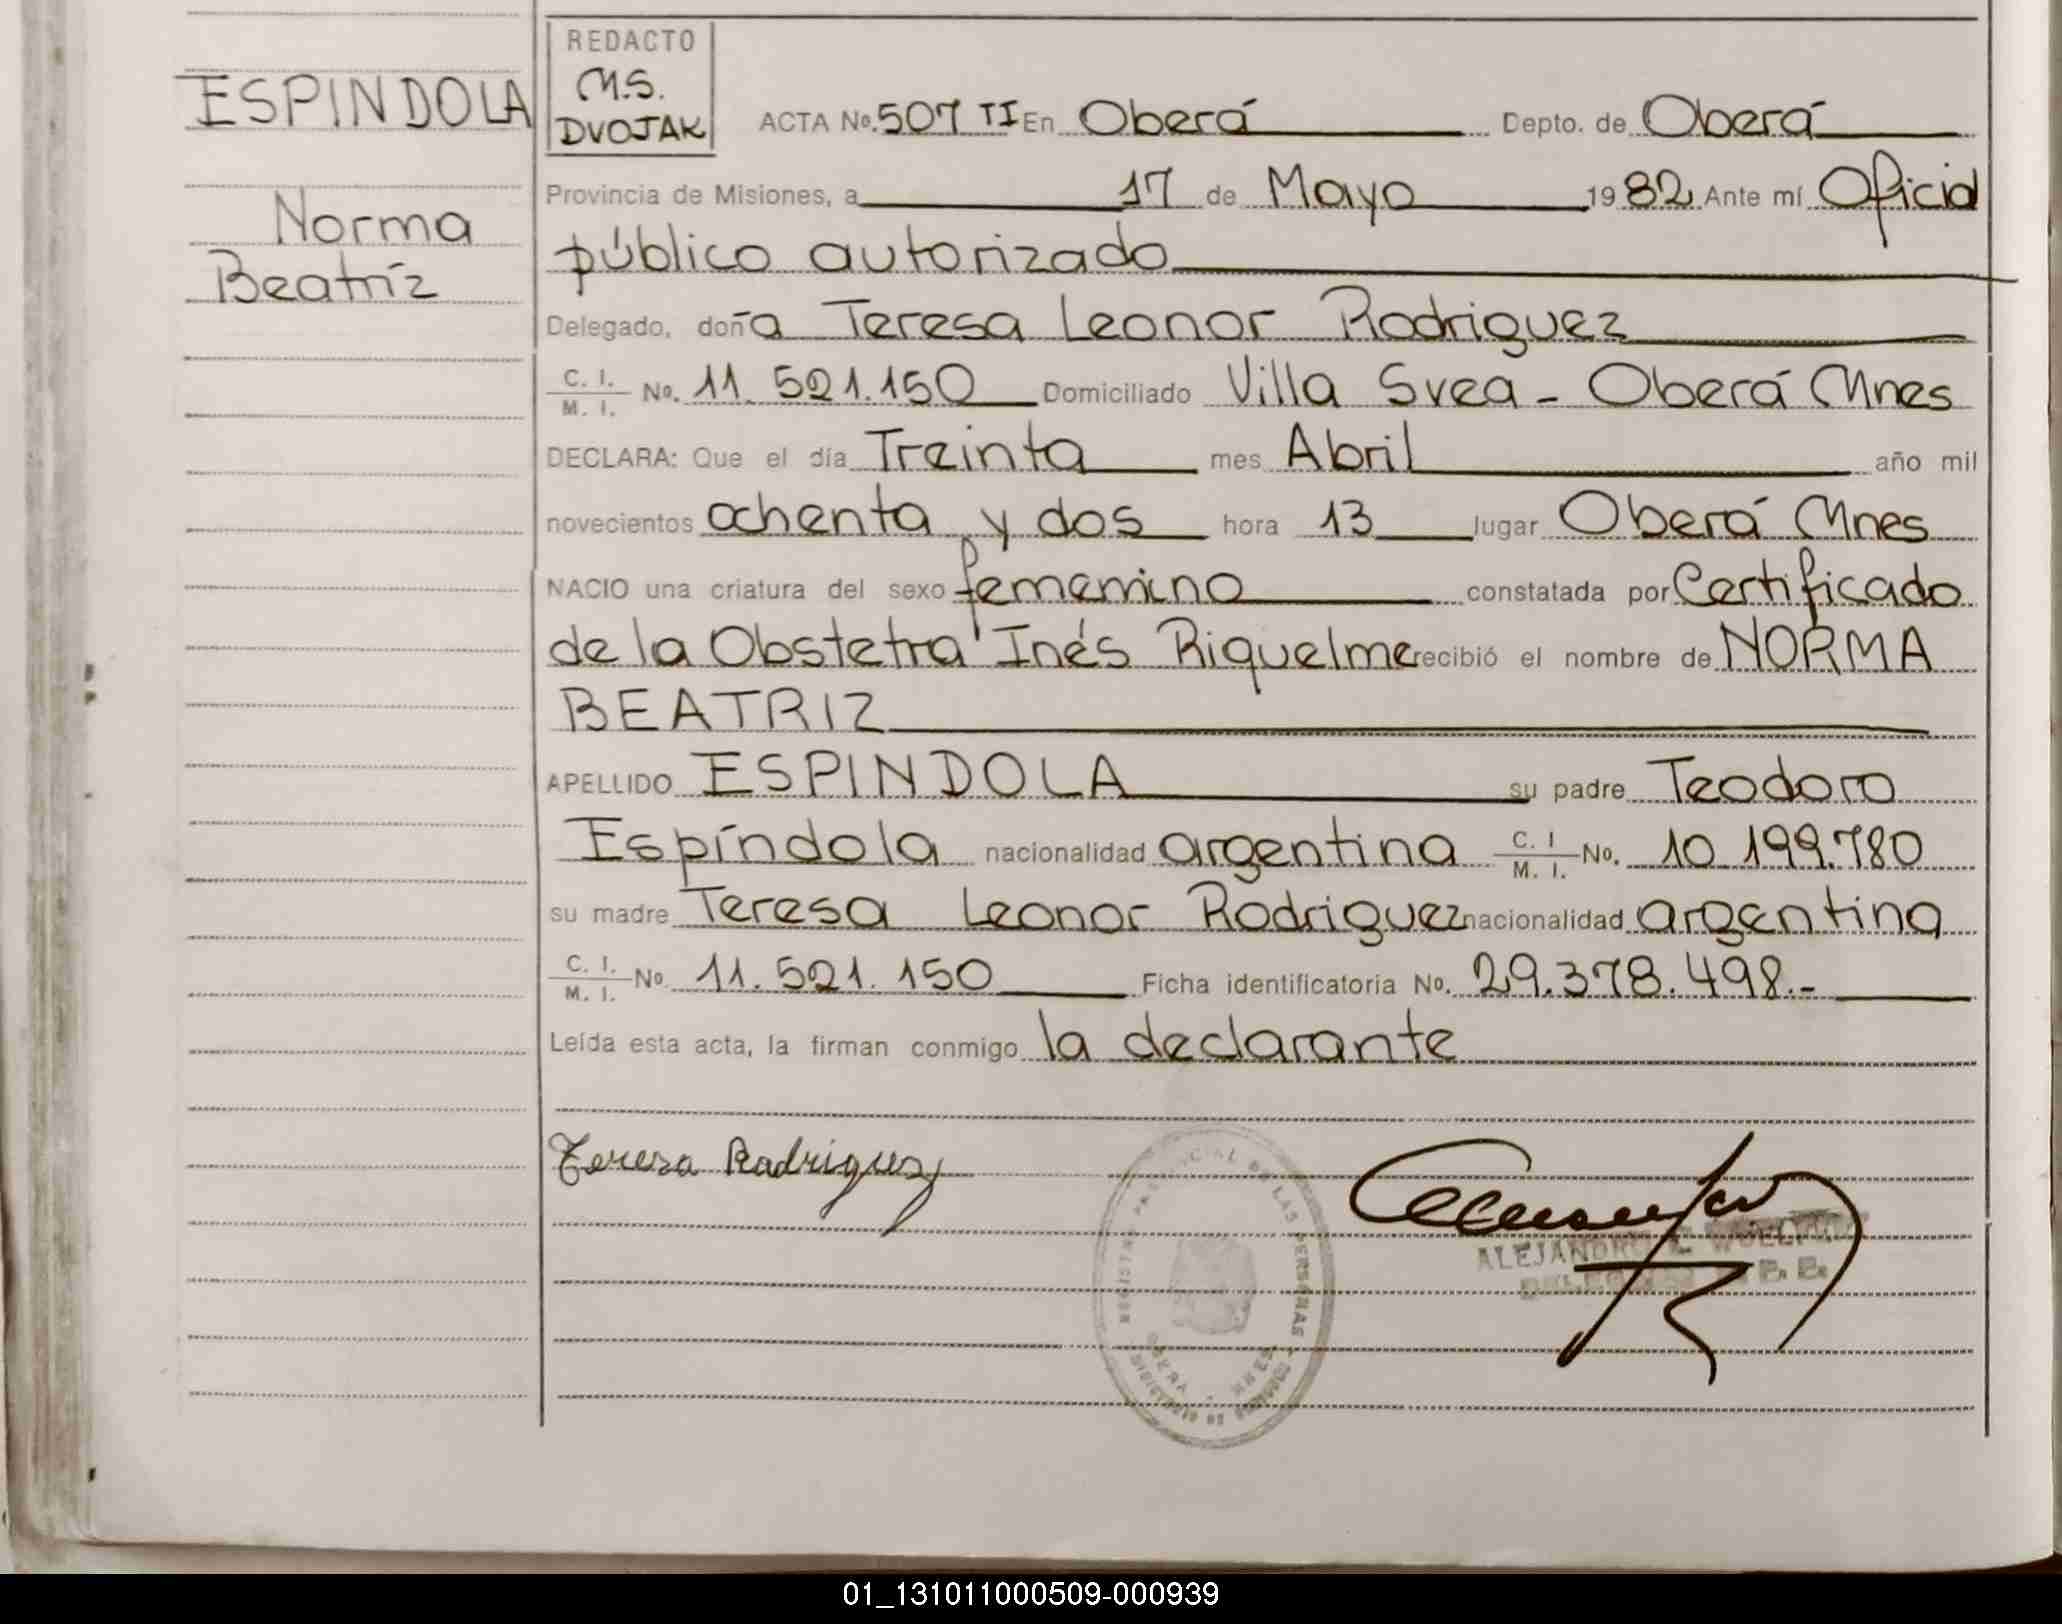 ESPINDOLA
Norma
Beatríz
REDACTO
M.S.
DVOJAK
ACTA No. 507 TI En Oberá Depto. de Oberá
Provincia de Misiones, a 17 de Mayo 1982 Ante mí Oficial
público autorizado
Delegado, doña Teresa Leonor Rodriguez
C. I. M. I. No. 11.521.150 Domiciliado Villa Svea - Oberá Mnes
DECLARA: Que el día Treinta mes Abril año mil
novecientos ochenta y dos hora 13 lugar Oberá Mnes
NACIO una criatura del sexo femenino constatada por Certificado
de la Obstetra Inés Riquelme recibió el nombre de NORMA
BEATRIZ
APELLIDO ESPINDOLA su padre Teodoro
Espíndola nacionalidad argentina C. I M. I. No. 10.199.780
su madre Teresa Leonor Rodriguez nacionalidad argentina
C. I. M. I. No 11.521.150 Ficha identificatoria No. 29.378.498.-
Leída esta acta, la firman conmigo la declarante
Teresa Rodriguez
REGISTRO PROVINCIAL DE LAS PERSONAS
OBERA - MNES
ALEJANDRO
01_131011000509-000939